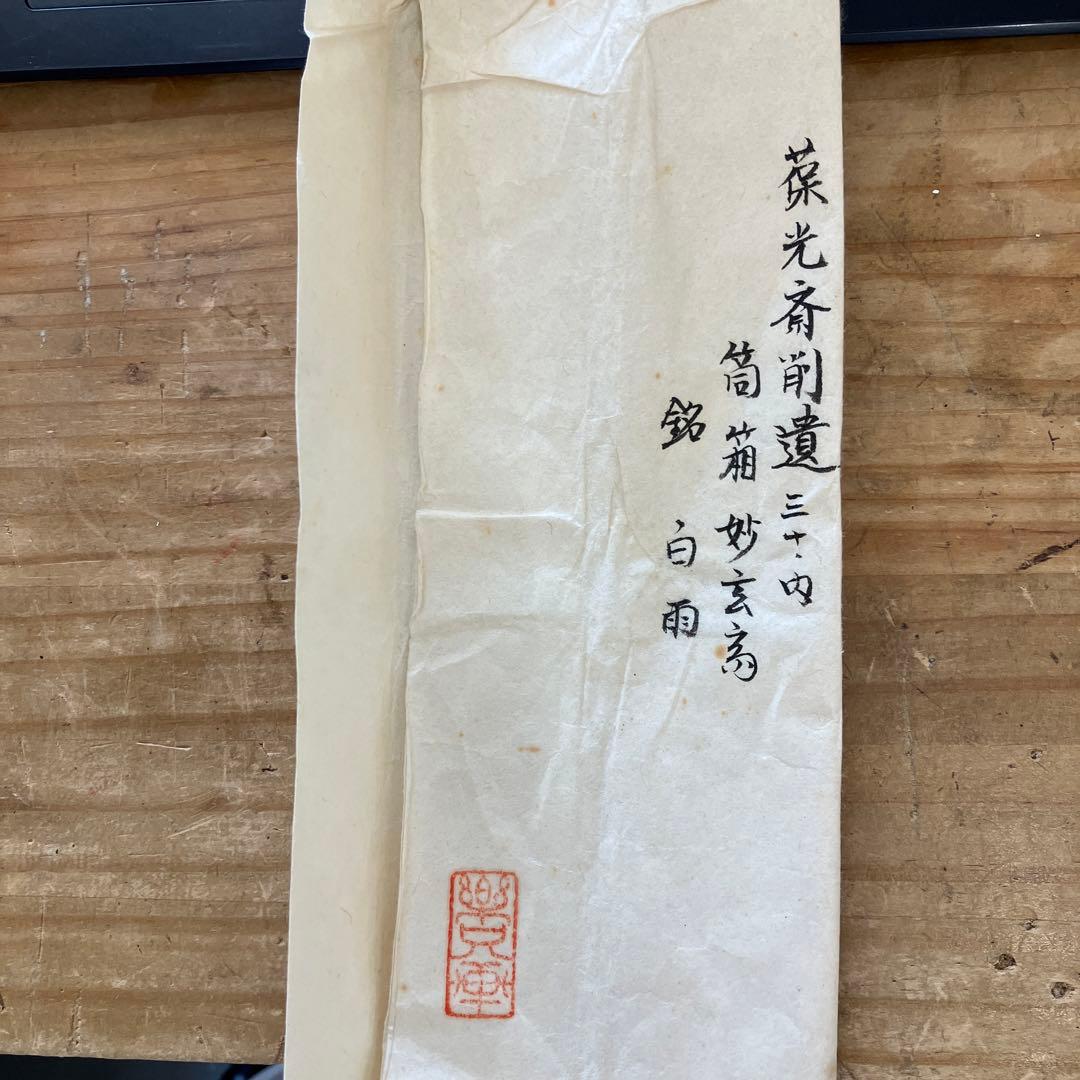 葆光斎削遺三十ノ内
筒箱妙玄斎
銘　白雨